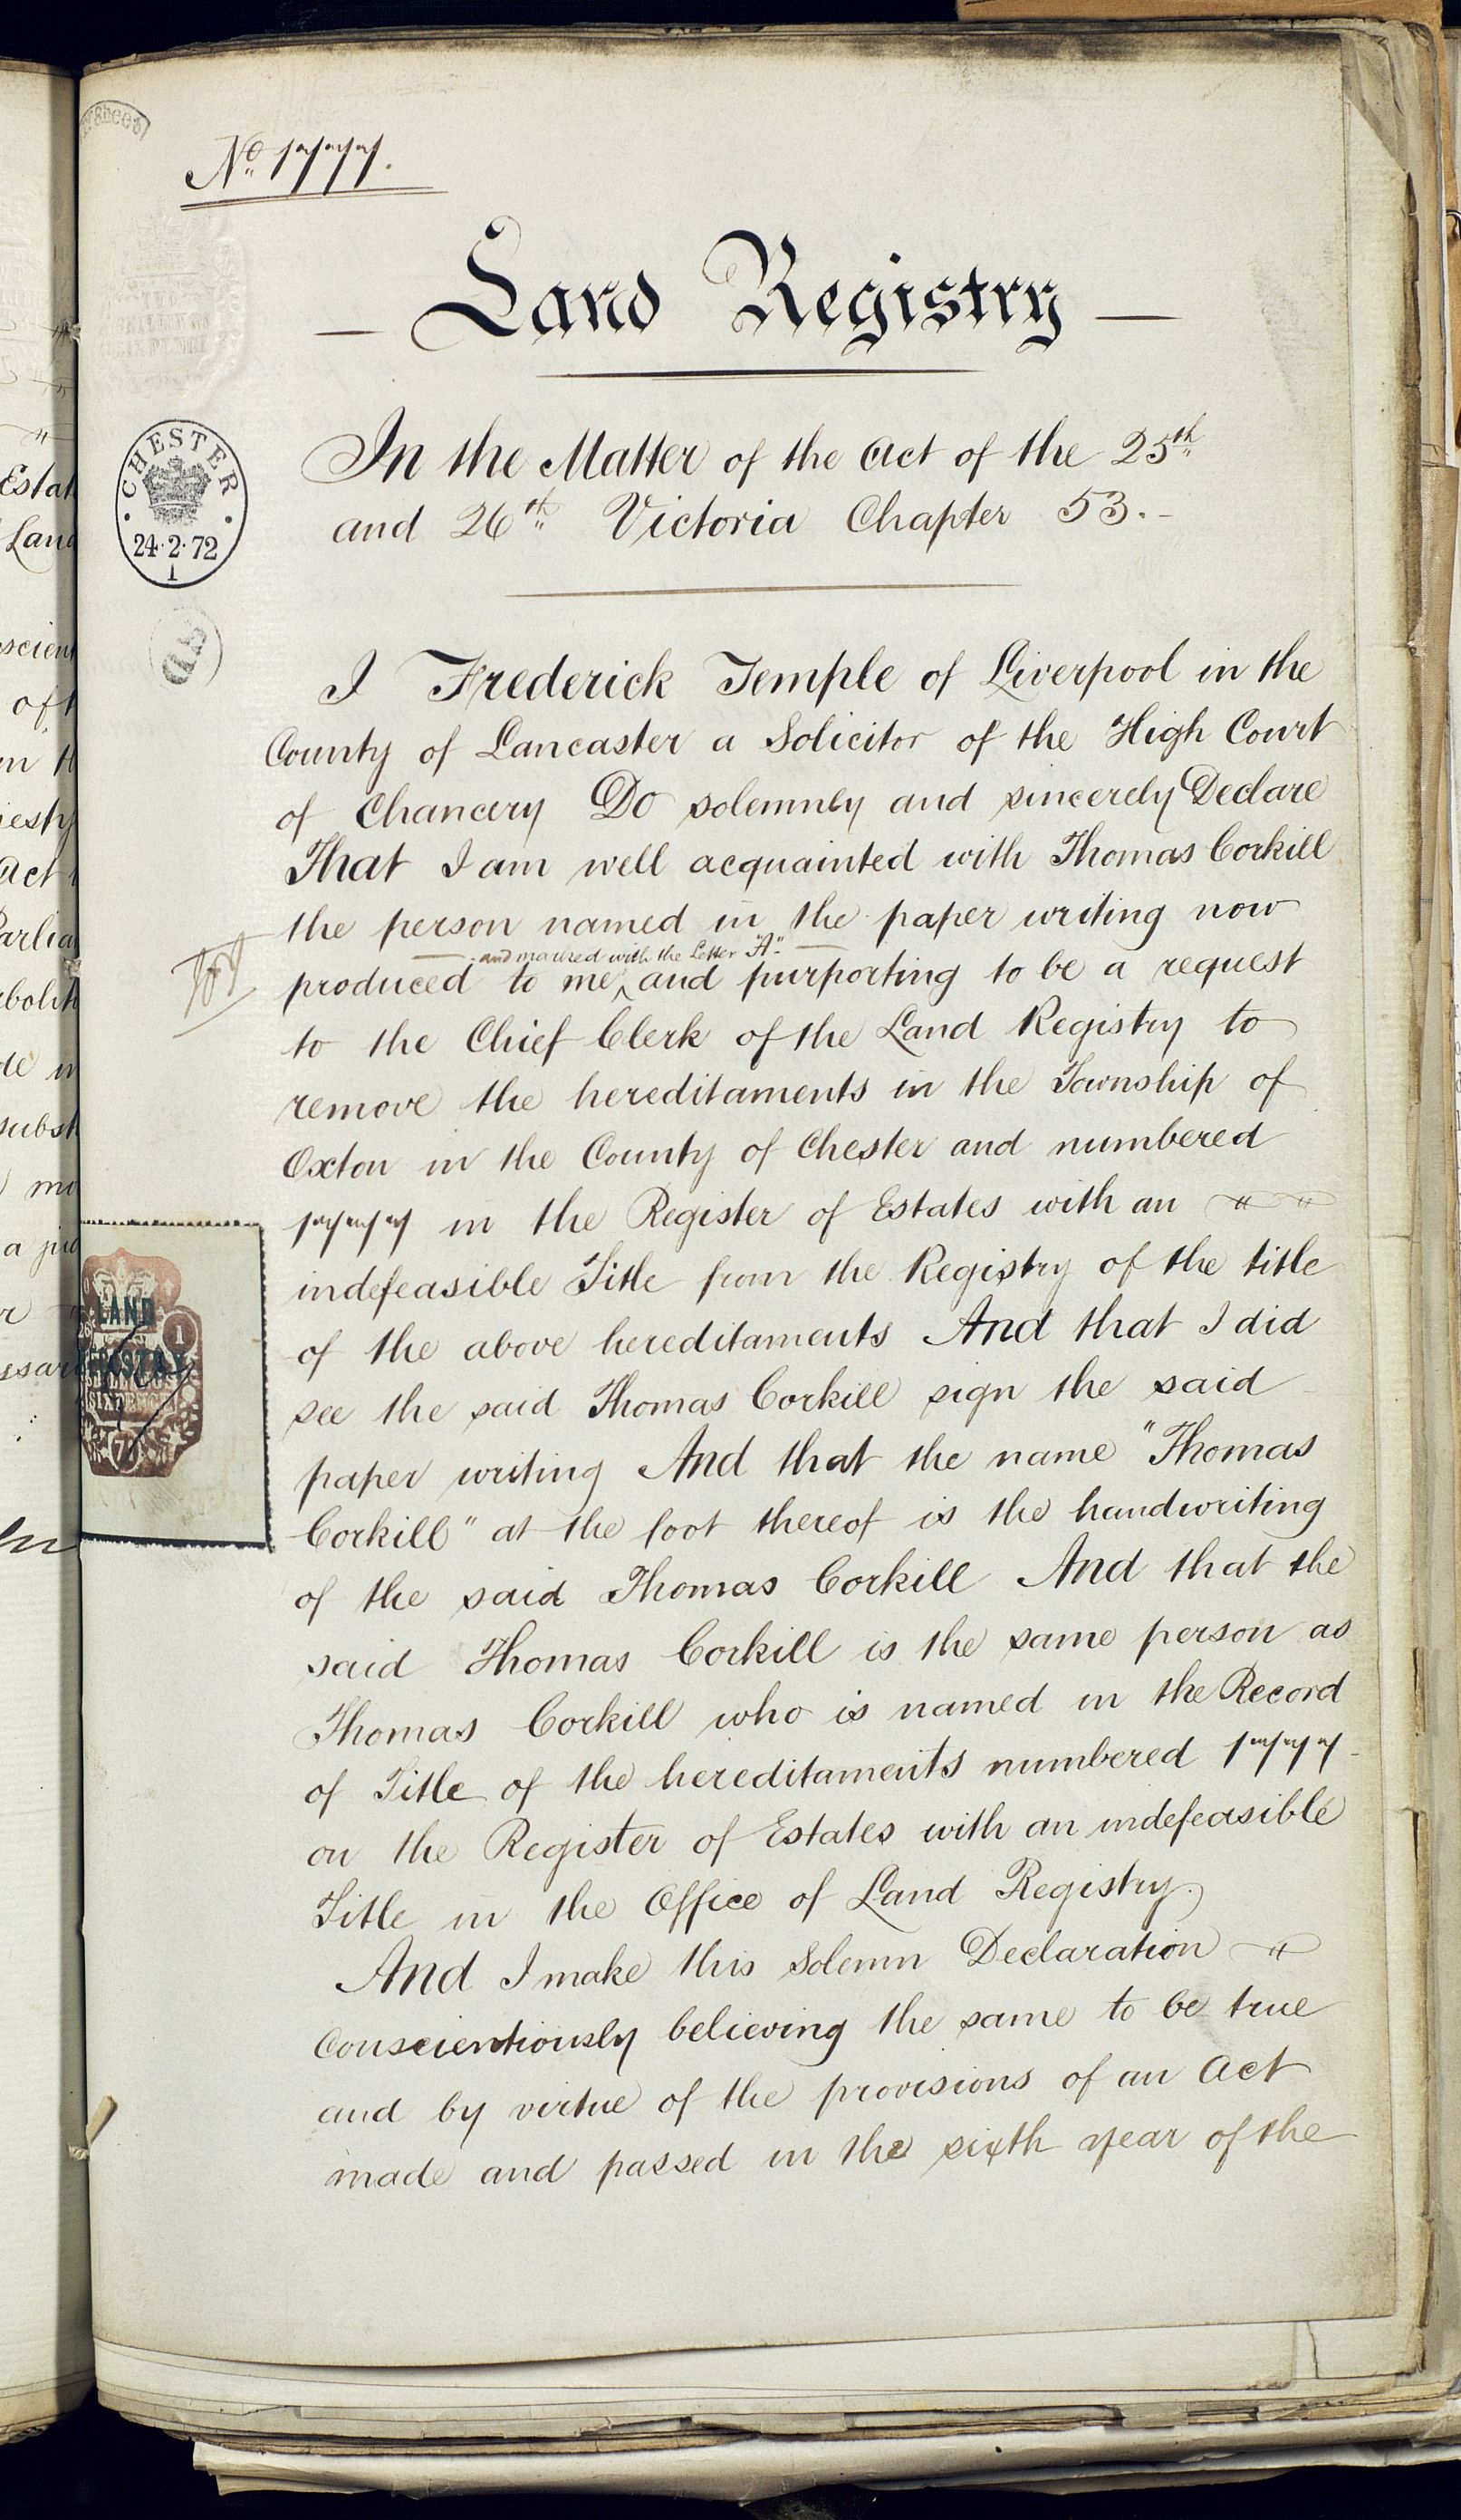 No. 1777.
Land Registry
In the Matter of the Act of the 25th
and 26th Victoria Chapter 53.-
CHESTER
24·2·72
1
I Frederick Temple of Liverpool in the
County of Lancaster a Solicitor of the High Court
of Chancery Do solemnly and sincerely Declare
That I am well acquainted with Thomas Corkill
the person named in the paper writing now
and marked with the Letter "A"
produced to me, and purporting to be a request
to the Chief Clerk of the Land Registry to
remove the hereditaments in the Township of
Oxton in the County of Chester and numbered
1777 in the Register of Estates with an
indefeasible Title from the Registry of the title
of the above hereditaments And that I did
see the said Thomas Corkill sign the said
paper writing And that the name "Thomas
Corkill" at the foot thereof is the handwriting
of the said Thomas Corkill And that the
said Thomas Corkill is the same person as
Thomas Corkill who is named in the Record
of Title of the hereditaments numbered 1777
on the Register of Estates with an indefeasible
Title in the Office of Land Registry.
And I make this Solemn Declaration
Conscientiously believing the same to be true
and by virtue of the provisions of an Act
made and passed in the sixth year of the
LAND
SIXPENCE